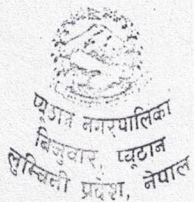 प्यूठान नगरपालिका
बिजुवार, प्यूठान
लुम्बिनी प्रदेश, नेपाल